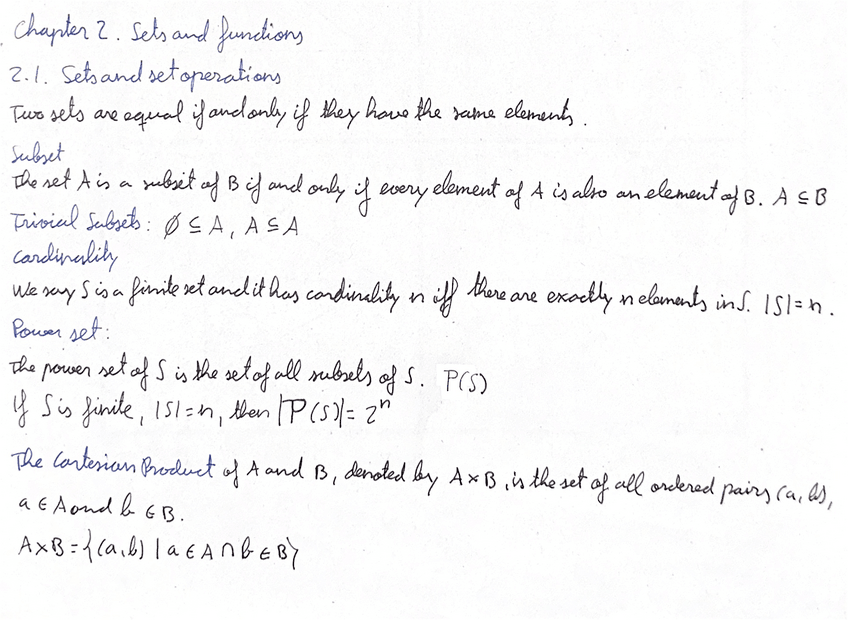 Chapter 2. Sets and functions
2.1. Sets and set operations
Two sets are equal if and only if they have the same elements.
Subset
The set A is a subset of B if and only if every element of A is also an element of B. A ⊆ B
Trivial Subsets: ∅ ⊆ A, A ⊆ A
Cardinality
We say S is a finite set and it has cardinality n iff there are exactly n elements in S. |S| = n.
Power set:
The power set of S is the set of all subsets of S. P(S)
If S is finite, |S| = n, then |P(S)| = 2ⁿ
The Cartesian Product of A and B, denoted by A×B, is the set of all ordered pairs (a, b),
a ∈ A and b ∈ B.
A×B = {(a,b) | a ∈ A ∩ b ∈ B}